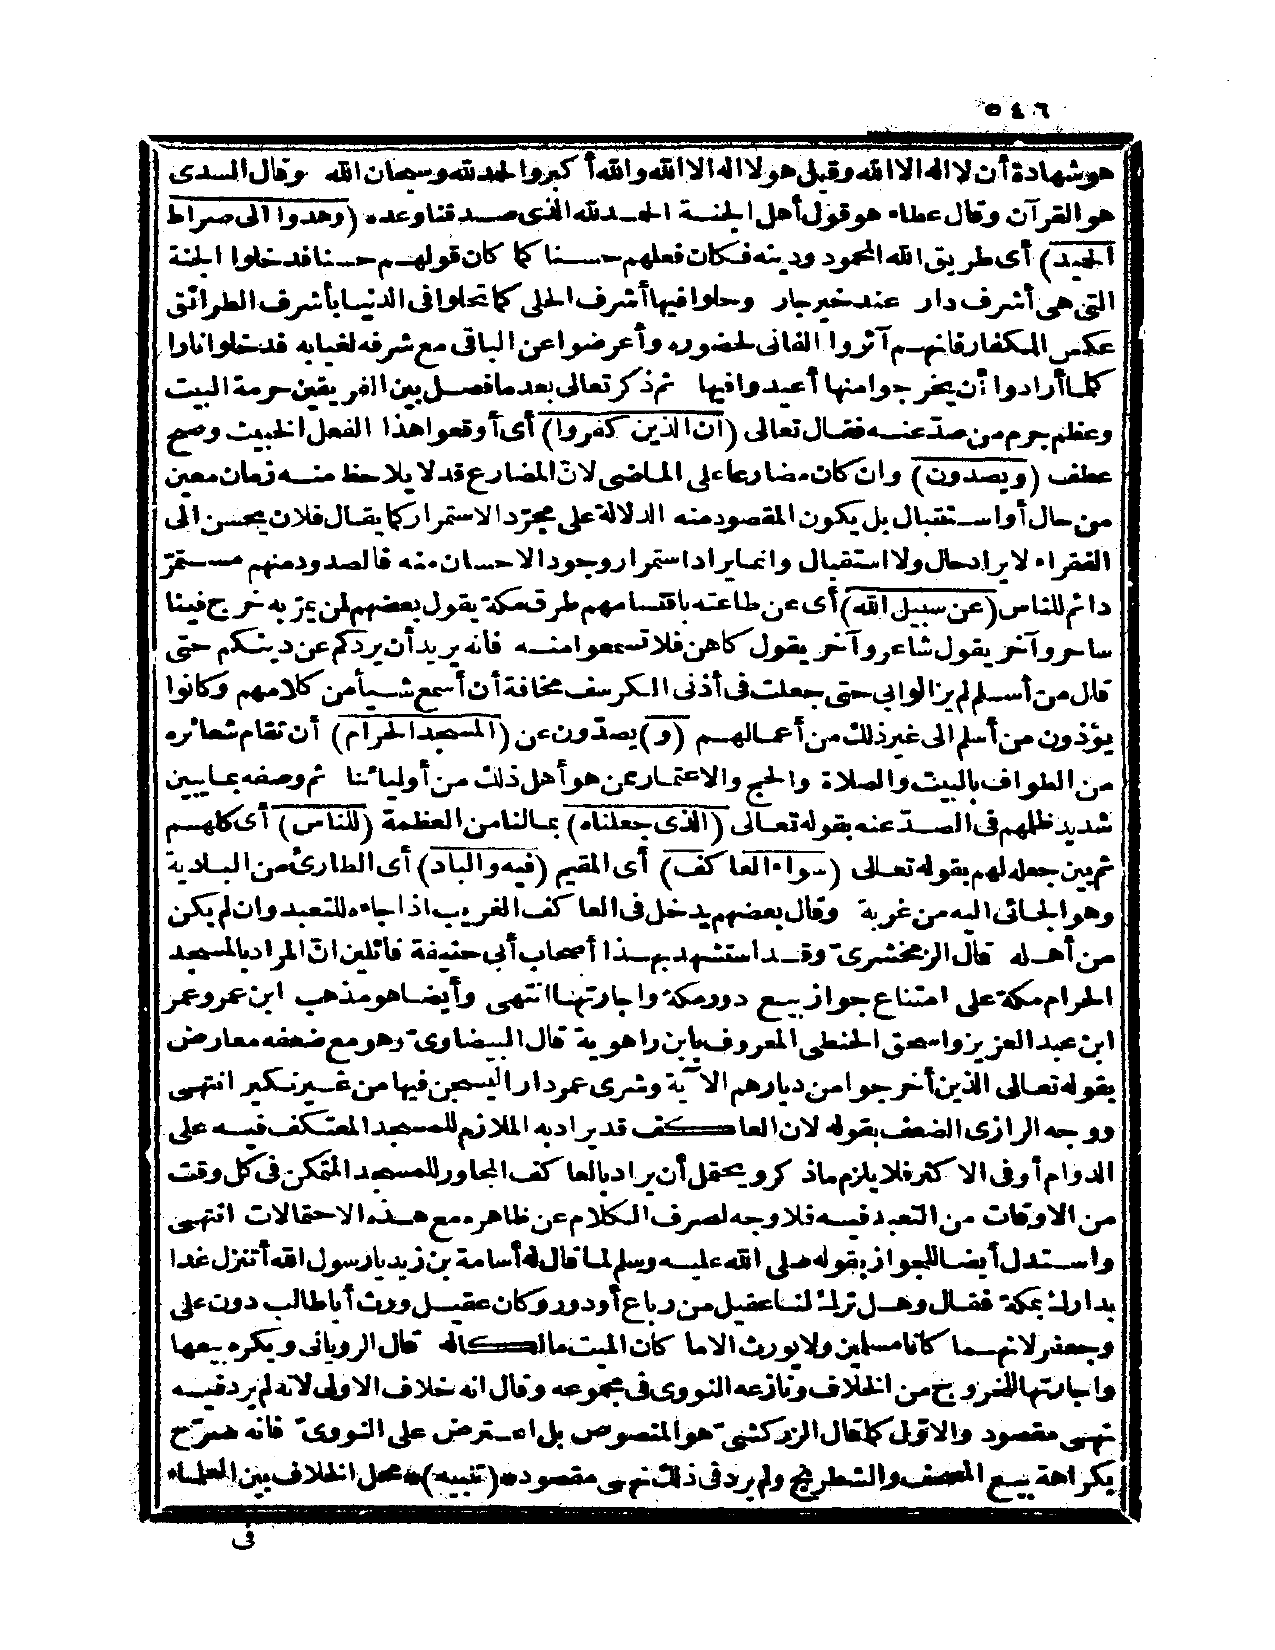 ٥٤٦
هو شهادة أن لا اله الا الله وقيل هو لا اله الا الله والله أكبر والحمد لله وسبحان الله وقال السدى
هو القرآن وقال عطاء هو قول أهل الجنة الحمد لله الذى صدقنا وعده (وهدوا الى صراط
الحميد) أى طريق الله المحمود ودينه فكان فعلهم حسنا كما كان قولهم حسنا فدخلوا الجنة
التى هى أشرف دار عند خير جار وحلوا فيها أشرف الحلى كما تحلوا فى الدنيا بأشرف الطرائق
عكس الكفار فانهم آثروا الفانى لحضوره وأعرضوا عن الباقى مع شرفه لغيابه فدخلوا نارا
كلما أرادوا أن يخرجوا منها أعيدوا فيها ثم ذكر تعالى بعد ما فصل بين الفريقين حرمة البيت
وعظم جرم من صد عنه فقال تعالى (ان الذين كفروا) أى أوقعوا هذا الفعل الخبيث وصح
عطف (ويصدون) وان كان مضارعا على الماضى لانّ المضارع قد لا يلاحظ منه زمان معين
من حال أو استقبال بل يكون المقصود منه الدلالة على مجرّد الاستمرار كما يقال فلان يحسن الى
الفقراء لا يراد حال ولا استقبال وانما يراد استمرار وجود الاحسان منه فالصدود منهم مستمرّ
دائم للناس (عن سبيل الله) أى عن طاعته باقتسامهم طرق مكة يقول بعضهم لمن يمرّ به خرج فينا
ساحر وآخر يقول شاعر وآخر يقول كاهن فلا تسمعوا منه فانه يريد أن يردكم عن دينكم حتى
قال من أسلم لم يزالوا بى حتى جعلت فى أذنى الكرسف مخافة أن أسمع شيأ من كلامهم وكانوا
يؤذون من أسلم الى غير ذلك من أعمالهم (و) يصدّون عن (المسجد الحرام) أن تقام شعائره
من الطواف بالبيت والصلاة والحج والاعتمار عن هو أهل ذلك من أوليائنا ثم وصفه بما يبين
شديد ظلمهم فى الصدّ عنه بقوله تعالى (الذى جعلناه) بما لنا من العظمة (للناس) أى كلهم
ثم بين جعله لهم بقوله تعالى (سواء العاكف) أى المقيم (فيه والباد) أى الطارئ من البادية
وهو الجائى اليه من غربة وقال بعضهم يدخل فى العاكف الغريب اذا جاءه للتعبد وان لم يكن
من أهله قال الزمخشرى وقد استشهد بهذا أصحاب أبى حنيفة قائلين انّ المراد بالمسجد
الحرام مكة على امتناع جواز بيع دور مكة واجارتها انتهى وأيضا هو مذهب ابن عمر وعمر
ابن عبد العزيز واسحق الحنظلى المعروف بابن راهوية قال البيضاوى وهو مع ضعفه معارض
بقوله تعالى الذين أخرجوا من ديارهم الآية وشرى عمر دارا ليسجن فيها من غير نكير انتهى
ووجه الرازى الضعف بقوله لان العاكف قد يراد به الملازم للمسجد المعتكف فيه على
الدوام أو فى الاكثر فلا يلزم ما ذكر ويحتمل أن يراد بالعاكف المجاور للمسجد المتمكن فى كل وقت
من الاوقات من التعبد فيه فلا وجه لصرف الكلام عن ظاهره مع هذه الاحتمالات انتهى
واستدل أيضا للجواز بقوله صلى الله عليه وسلم لما قال له أسامة بن زيد يا رسول الله أتنزل غدا
بدارك بمكة فقال وهل ترك لنا عقيل من رباع أو دور وكان عقيل ورث أبا طالب دون على
وجعفر لانهما كانا مسلمين ولا يورث الا ما كان الميت مالكا له قال الرويانى ويكره بيعها
واجارتها للخروج من الخلاف ونازعه النووى فى مجموعه وقال انه خلاف الاولى لانه لم يرد فيه
نهى مقصود والاوّل كما قال الزركشى هو المنصوص بل اعترض على النووى فانه صرّح
بكراهة بيع المصحف والشطرنج ولم يرد فى ذلك نهى مقصود *(تنبيه)* محل الخلاف بين العلماء
فى